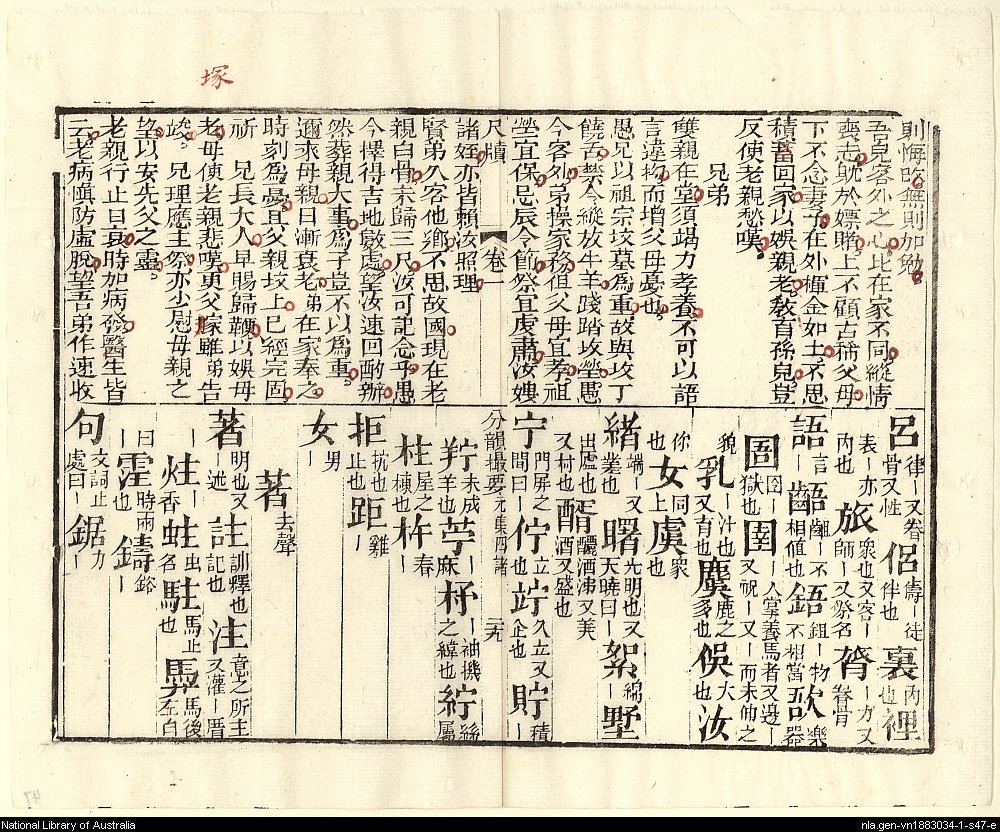 塚
則悔改無則加勉
吾見客外之心比在家不同縱情
喪志躭於嫖賭上不顧古稀父母
下不念妻子在外揮金如土不思
積蓄回家以娛親老教育孫兒豈
反使老親愁嘆
兄弟
雙親在堂須竭力孝養不可以語
言違拗而增父母憂也
愚兄以祖宗坟墓為重故與坟丁
饒舌禁令縱放牛羊踐踏坟塋愚
今客外弟操家務值父母宜孝祖
塋宜保忌辰令節祭宜虔肅汝嫂
尺牘 卷一
諸姪亦皆賴汝照理
賢弟久客他鄉不思故國現在老
親白骨未歸三尺汝可記念乎愚
今擇得吉地數處望汝速回酌辦
然葬親大事為子豈不以為重
邇來母親日漸衰老弟在家奉之
時刻為憂且父親坟上已經完固
祈 兄長大人早賜歸鞭以娛母
老母使老親悲嘆更父塚雖弟告
竣 兄理應主祭亦少慰母親之
望以安先父之靈
老親行止日衰時加病發醫生皆
云老病慎防虛脫望吾弟作速收
呂 律｜又卷骨又姓 侶 儔｜徒伴也 裏 內也 裡
表｜亦內也 旅 眾也又客｜師｜又祭名 膂 ｜力又脊骨
語 言｜ 齬 齟｜不相值也 鋙 鉏｜物不相當 敔 樂器
圄 囹｜獄也 圉 ｜人掌養馬者又邊｜又祝｜又｜而未伸之
貌 乳 ｜汁也又育也 麌 鹿之多也 俁 大也 汝
你同也 女 上 虞
緒 端｜又業也 曙 光明也又天曉曰｜ 絮 綿｜ 墅
出廬也又村也 醑 釃酒泲又美酒又盛也
宁 門屏之間曰｜ 佇 立也 竚 久立又企也 貯 積｜
分韻撮要 元集丹諸 二九
羜 未成羊也 苧 ｜麻 杼 ｜袖機之緯也 紵 絲屬
柱 屋之｜棟也 杵 舂｜
拒 抗也｜止也 距 雞｜
女 男｜
著 去聲
著 明也又｜述 註 訓釋也｜記也 注 意之所主又灌｜
炷 ｜香 蛀 ｜虫名 駐 馬止也 馵 馬後左白
曰｜ 霔 時雨也 鑄 鎔｜
句 文詞止處曰｜ 鋸 刀｜
National Library of Australia
nla.gen-vn1883034-1-s47-e